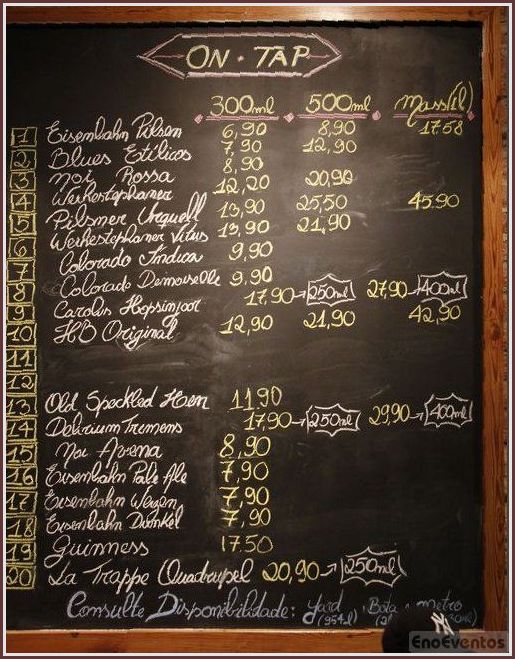 ON TAP
300ml 500ml Mass(1l)
1 Eisenbahn Pilsen 6,90 8,90 17.58
2 Blues Etílicos 7,90 12,90
3 Noi Rossa 8,90
4 Weihestephaner 12,20 20,90
5 Pilsner Urquell 13,90 25,50 45.90
6 Weihestephaner Vitus 13,90 21,90
7 Colorado Indica 9,90
8 Colorado Demoiselle 9,90
9 Carolus Hopsinjoor 17.90→ 250ml 27,90→ 400ml
10 HB Original 12,90 21,90 42,90
11
12
13 Old Speckled Hen 11.90
14 Delirium Tremens 17,90→ 250ml 29,90→ 400ml
15 Noi Avena 8,90
16 Eisenbahn Pale Ale 7,90
17 Eisenbahn Weizen 7,90
18 Eisenbahn Dunkel 7,90
19 Guinness 17.50
20 La Trappe Quadrupel 20,90→ 250ml
Consulte Disponibilidade: Yard Bota e metro
EnoEventos